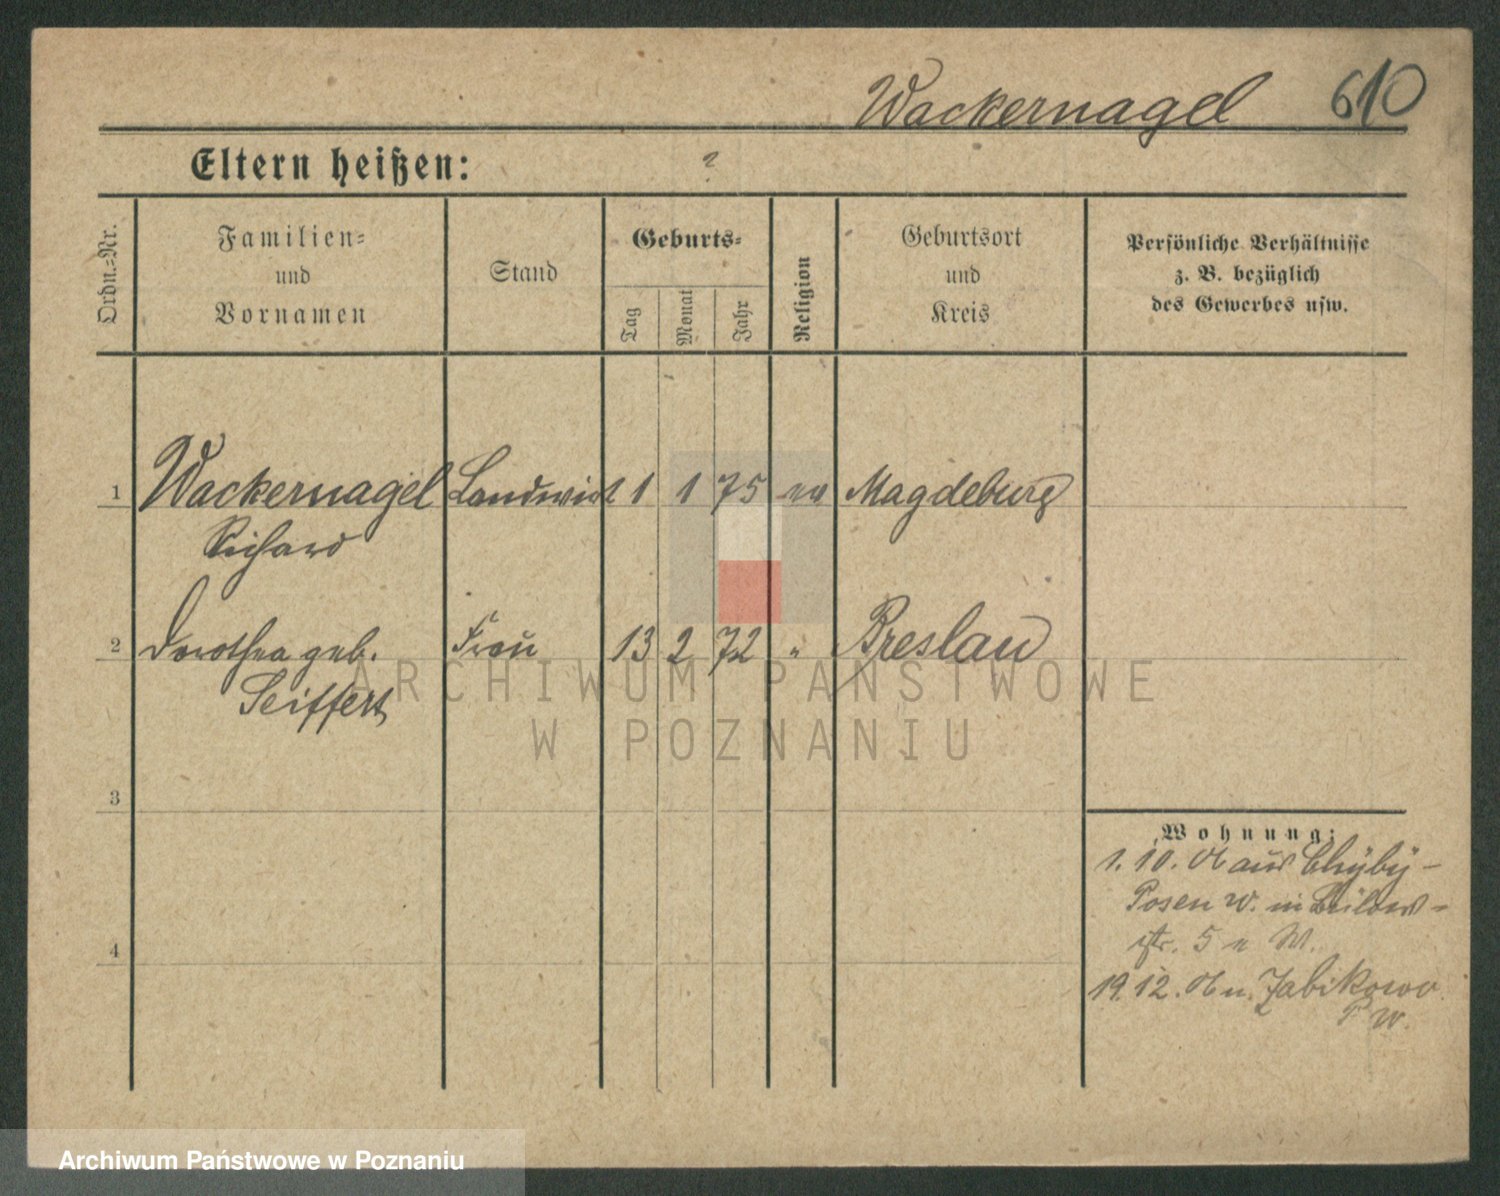 Wackernagel 610
Eltern heißen: ?
Ordn.-Nr.
Familien-
und
Vornamen
Stand
Geburts-
Tag
Monat
Jahr
Religion
Geburtsort
und
Kreis
Persönliche Verhältnisse
z. B. bezüglich
des Gewerbes usw.
1 Wackernagel Landwirt 1 1 75 ev Magdeburg
Richard
2 Dorothea geb. Frau 13 2 72 " Breslau
Seiffert
ARCHIWUM PAŃSTWOWE
W POZNANIU
3
Wohnung:
1. 10. 06 aus Chÿbÿ-
Posen W. in Bülow-
4
str. 5 n W.
19. 12. 06 n. Zabikowo
P W.
Archiwum Państwowe w Poznaniu